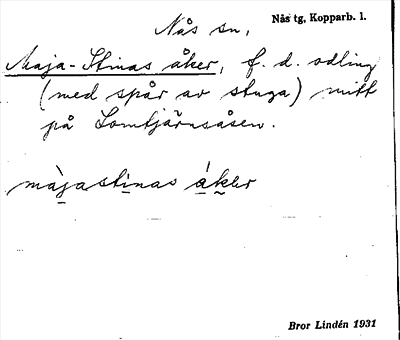 Nås sn, Nås tg, Kopparb. l.
Maja-Stinas åker, f. d. odling
(med spår av stuga) mitt
på Lomtjärnsåsen.
màjastinas ákər
Bror Lindén 1931